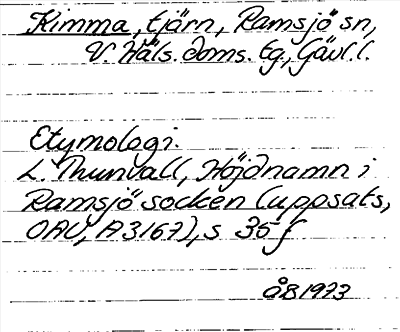 Kimma, tjärn, Ramsjö sn,
V. Häls. doms. tg., Gävl. l.
Etymologi.
L. Thunvall, Höjdnamn i
Ramsjö socken (uppsats,
OAU, A3167), s 35 f
ÅB 1973